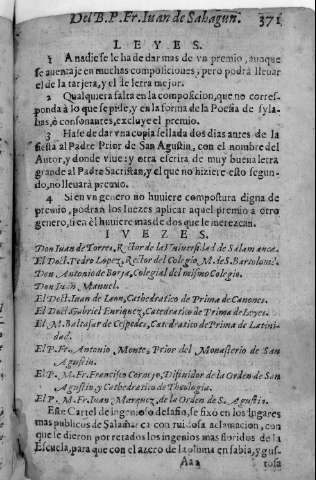 Del B. P. Fr. Iuan de Sahagun. 371
LEYES.
1 A nadie se le ha de dar mas de vn premio, aunque
se auentaje en muchas composiciones, pero podrà lleuar
el de la tarjeta, y el de letra mejor.
2 Qualquiera falta en la composicion, que no corres-
ponda à lo que se pide, y en la forma de la Poesia de syla-
bas, ò consonantes, excluye el premio.
3 Hase de dar vna copia sellada dos dias antes de la
fiesta al Padre Prior de San Agustin, con el nombre del
Autor, y donde viue: y otra escrita de muy buena letra
grande al Padre Sacristan, y el que no hiziere esto segun-
do, no lleuarà premio.
4 Si en vn genero no huuiere compostura digna de
premio, podràn los Iuezes aplicar aquel premio a otro
genero, si en èl huuiere mas de dos que le merezcan.
IVEZES.
Don Iuan de Torres, Rector de la Vniuersidad de Salamanca.
El Doct. Pedro Lopez, Rector del Colegio M. de S. Bartolomè.
Don Antonio de Borja, Colegial del mismo Colegio.
Don Iuan Manuel.
El Doct. Iuan de Leon, Cathedratico de Prima de Canones.
El Doct. Gabriel Enriquez, Catedratico de Prima de Leyes.
El M. Baltasar de Cespedes, Catedratico de Prima de Latini-
dad.
El P. Fr. Antonio Monte, Prior del Monasterio de San
Agustin.
El P. M. Fr. Francisco Cornejo, Difinidor de la Orden de San
Agustin, y Cathedratico de Theologia.
El P. M. Fr. Iuan Marquez, de la Orden de S. Agustin.
Este Cartel de ingenioso desafio, se fixò en los lugares
mas publicos de Salamãca con ruidosa aclamacion, con
que se dieron por retados los ingenios mas floridos de la
Escuela, para que con el azero de la pluma en sabia, y gus-
Aa 2 tosa